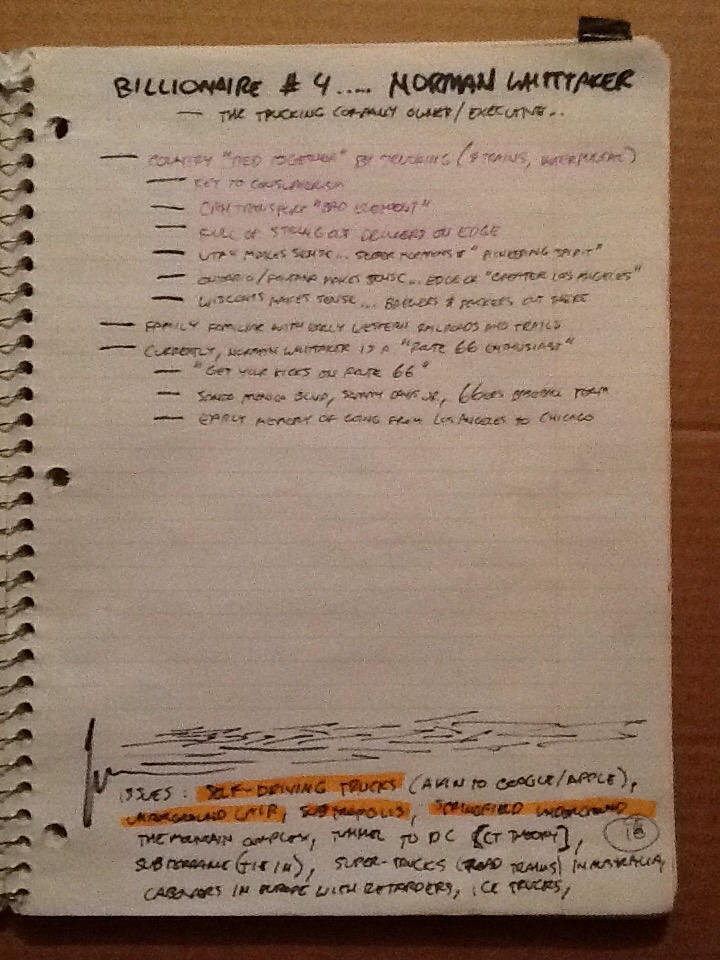 BILLIONAIRE # 4..... NORMAN WHITTAKER
— THE TRUCKING COMPANY OWNER/EXECUTIVE..
— COUNTRY "TIED TOGETHER" BY TRUCKING (& TRAINS, WATER/
— KEY TO CONSUMERISM
— CAN TRANSPORT "BAD ELEMENT"
— FULL OF STRUNG OUT DRIVERS ON EDGE
— UTAH MAKES SENSE... SUPER MORMONS & "PIONEERING SPIRIT"
— ONTARIO/FONTANA MAKES SENSE... EDGE OF "GREATER LOS ANGELES"
— MAKES SENSE... BREWERS & PACKERS OUT THERE
— FAMILY FAMILIAR WITH EARLY WESTERN RAILROADS AND TRAILS
— CURRENTLY, NORMAN WHITTAKER IS A "ROUTE 66 ENTHUSIAST"
— "GET YOUR KICKS ON ROUTE 66"
— SANTA MONICA BLVD, SAMMY DAVIS JR, 66ERS BASEBALL TEAM
— EARLY MEMORY OF GOING FROM LOS ANGELES TO CHICAGO
ISSUES: SELF-DRIVING TRUCKS (AKIN TO GOOGLE/APPLE),
UNDERGROUND LAIR, SUBTROPOLIS, SPRINGFIELD UNDERGROUND,
THE MOUNTAIN COMPLEX, TUNNEL TO DC [CT THEORY], 18
(TIE IN), SUPER-TRUCKS (ROAD TRAINS) IN AUSTRALIA,
CABOVERS IN EUROPE WITH RETARDERS, ICE TRUCKS,